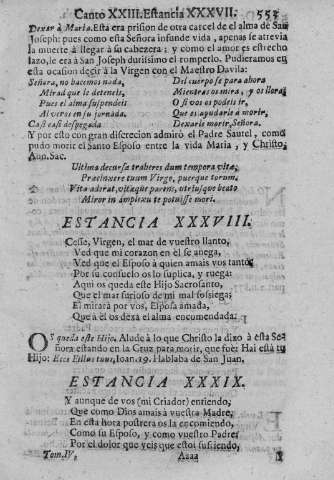 Canto XXIII. Estancia XXXVII. 553
Dexar à Maria. Está era prision de otra carcel de el alma de San
Joseph: pues como esta Señora infunde vida, apenas se atrevia
la muerte à llegar à su cabezera: y como el amor es estrecho
lazo, le era à San Joseph durissimo el romperlo. Pudieramos en
esta ocasion decir à la Virgen con el Maestro Davila:
Señora, no hacemos nada, Del cuerpo se para ahora
Mirad que le deteneis, Mientras os mira, y os llora:
Pues el alma suspendeis O si vos os podeis ir,
Al veros en su jornada. Que es ayudarle à morir,
Casi casi despegada Dexarle morir, Señora.
Y por esto con gran discrecion admirò el Padre Sautel, como
pudo morir el Santo Esposo entre la vida Maria, y Christo.
Ann. Sac.
Ultima decursæ traheres dum tempora vitæ,
Præsinxere tuum Virgo, puerque torum.
Vita aderat, vitæque parens, utriusque beato
Miror in amplexu te potuisse mori.
ESTANCIA XXXVIII.
Cesse, Virgen, el mar de vuestro llanto,
Ved que mi corazon en èl se anega,
Ved que el Esposo à quien amais vos tanto
Por su consuelo os lo suplica, y ruega:
Aqui os queda este Hijo Sacrosanto,
Que el mar furioso de mi mal sossiega;
El mirarà por vos, Esposa amada,
Que à èl os dexa el alma encomendada.
Os queda este Hijo. Alude à lo que Christo la dixo à esta Señora
estando en la Cruz para morir, que fue: Hai està tu
Hijo: Ecce Filius tuus, Ioan. 19. Hablaba de San Juan.
ESTANCIA XXXIX.
Y aunque de vos (mi Criador) entiendo,
Que como Dios amais à vuestra Madre,
En esta hora postrera os la encomiendo,
Como su Esposo, y como vuestro Padre:
Por el dolor que veis que estoi sufriendo,
Tom. IV. Aaaa